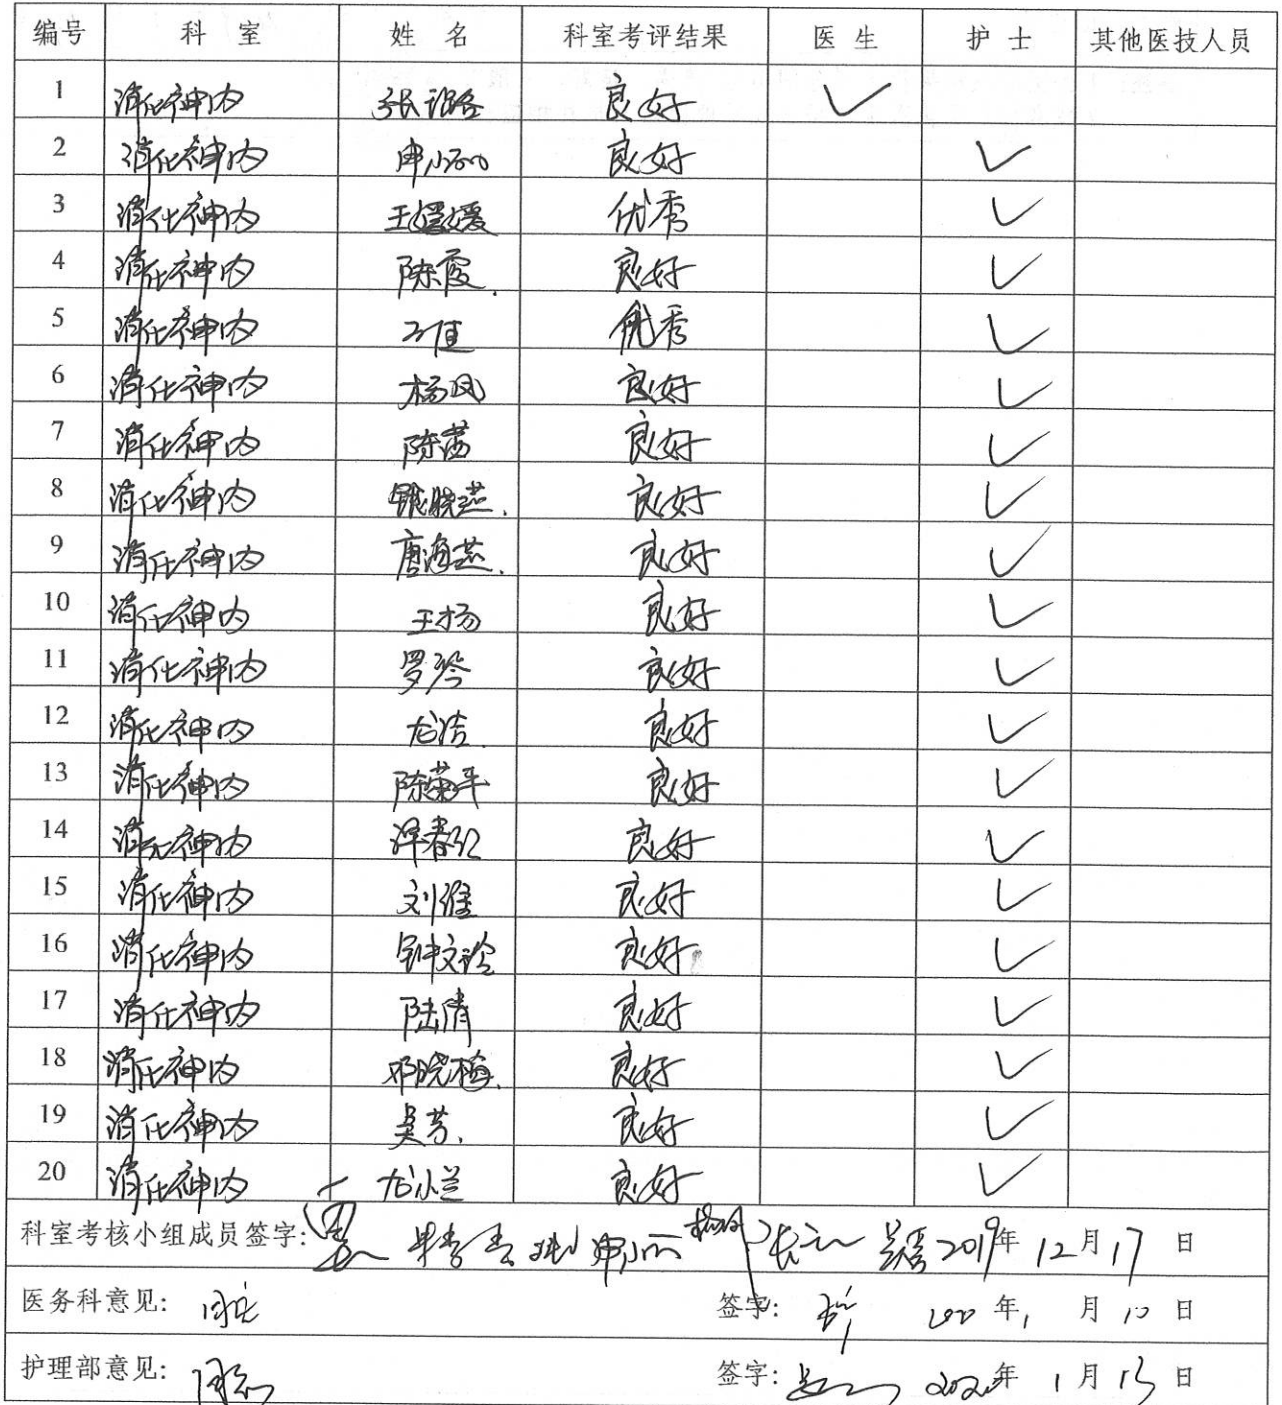 编号 科室 姓名 科室考评结果 医生 护士 其他医技人员
1 消化神内 张 良好 ✓
2 消化神内 申小丽 良好 ✓
3 消化神内 王媛媛 优秀 ✓
4 消化神内 陈霞 良好 ✓
5 消化神内 优秀 ✓
6 消化神内 杨凤 良好 ✓
7 消化神内 陈茜 良好 ✓
8 消化神内 晓燕 良好 ✓
9 消化神内 唐海燕 良好 ✓
10 消化神内 王杨 良好 ✓
11 消化神内 罗琴 良好 ✓
12 消化神内 龙洁 良好 ✓
13 消化神内 陈荣平 良好 ✓
14 消化神内 春红 良好 ✓
15 消化神内 刘 良好 ✓
16 消化神内 钟文 良好 ✓
17 消化神内 陆倩 良好 ✓
18 消化神内 邓晓梅 良好 ✓
19 消化神内 吴芳 良好 ✓
20 消化神内 龙小兰 良好 ✓
科室考核小组成员签字: 申小丽 2019年12月17日
医务科意见: 同意 签字: 2020年1月10日
护理部意见: 同意 签字: 2020年1月13日